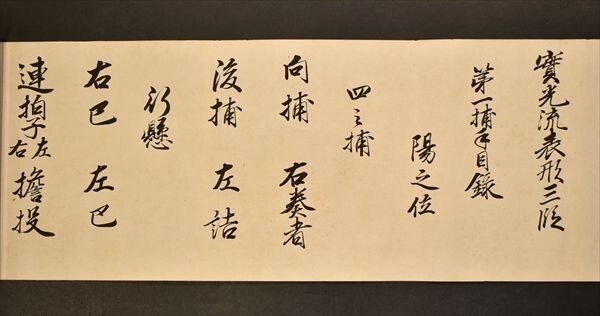 寳光流表形三段
第一捕手目録
陽之位
四之捕
向捕 右奏者
後捕 左詰
行懸
右巴 左巴
連拍子左右 擔投